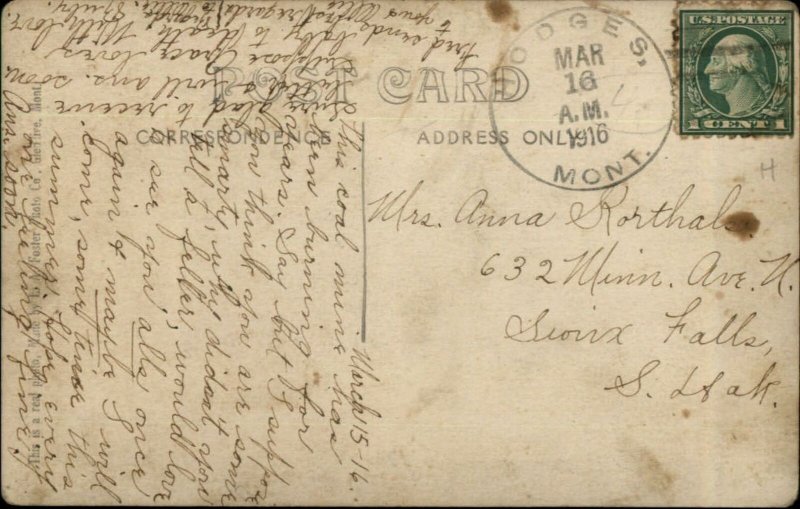 POST CARD
CORRESPONDENCE
ADDRESS ONLY
HODGES,
MAR
16
A.M.
1916
MONT.
U.S. POSTAGE
1 CENT 1
4
Mrs. Anna Korthals.
632 Minn. Ave. N.
Sioux Falls,
S. Dak.
March 15-16.
This coal mine has
been burning for
years. Say but I suppose
you think you are some
smarty, why didant you
tell a feller, would love
to see you alls once
again & maybe I will
come, some time this
summer. Hope every
one feeling fine.
Ans. soon.
Sure glad to receive
will ans. soon.
Suppose Grace loves
baby to death. With love
This is a real photo, made by Foster Photo Co. Glendive, mont.